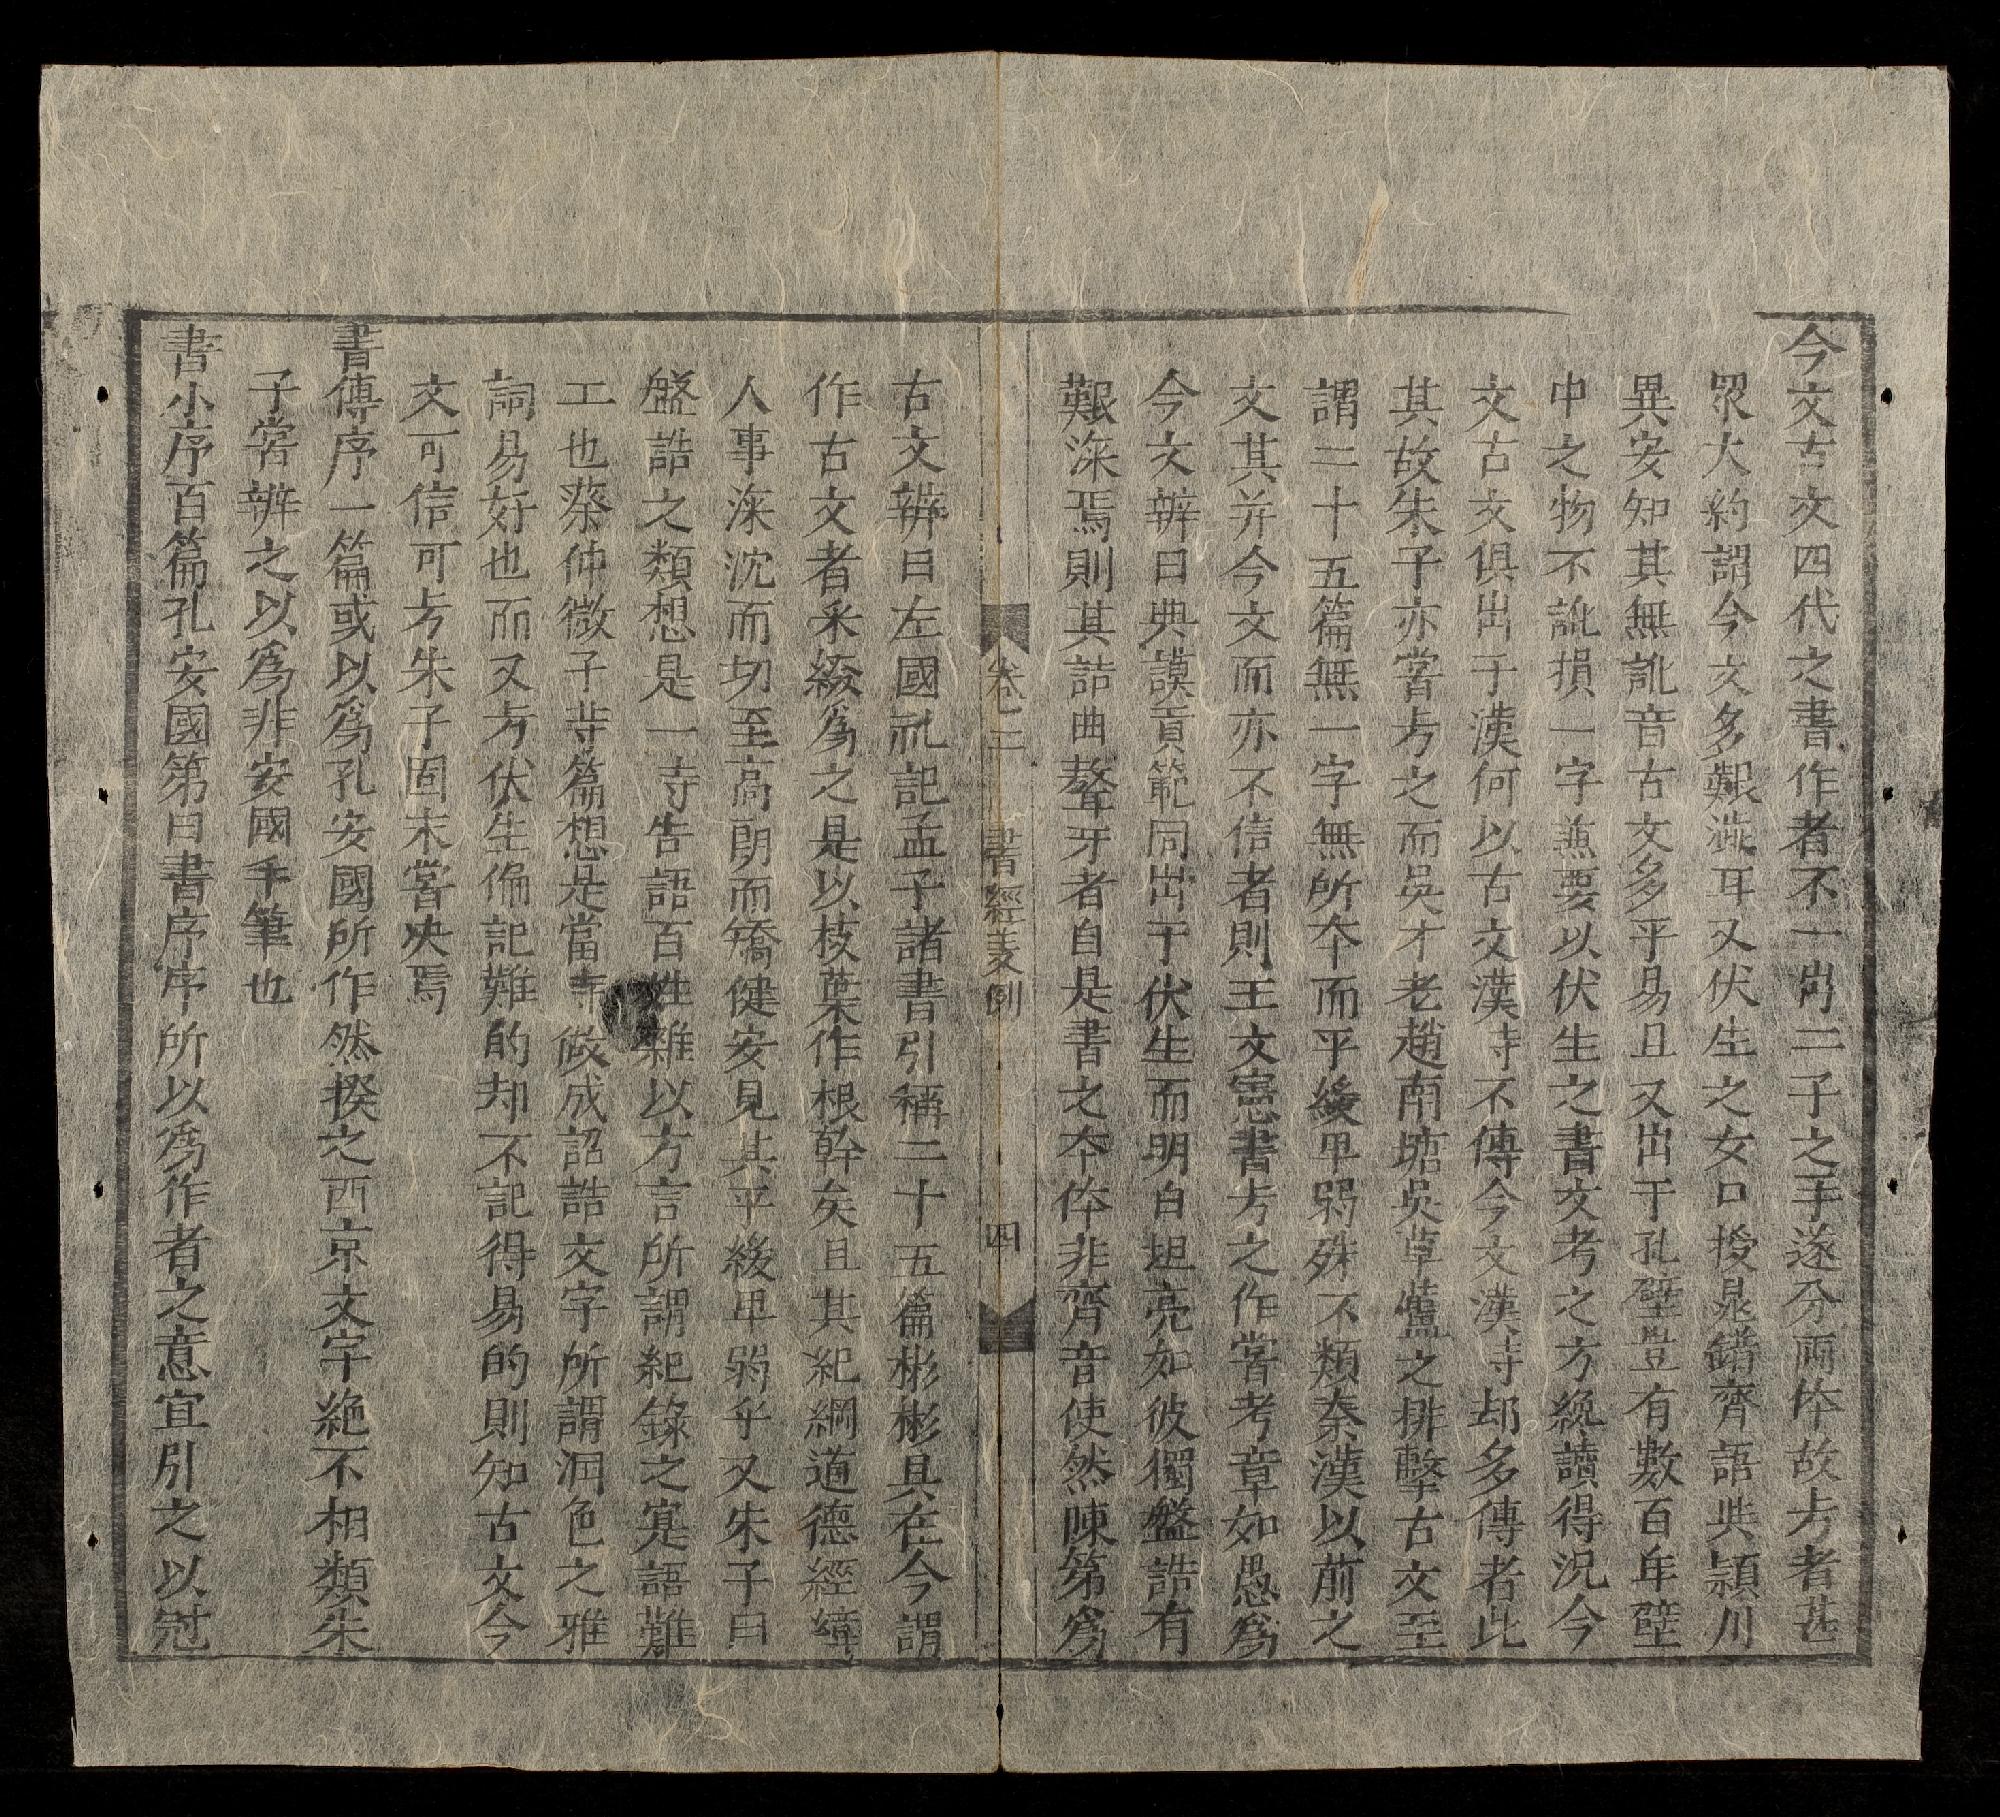 今文古文四代之書作者不一出二子之手遂分兩体故攷者甚
眾大約謂今文多艱澁耳又伏生之女口授晁錯齊語與潁川
異安知其無訛音古文多平易且又出于孔壁豈有數百年壁
中之物不訛損一字兼要以伏生之書文考之方能讀得況今
文古文俱出于漢何以古文漢時不傳今文漢時却多傳者此
其故朱子亦嘗攷之而吳才老趙南塘吳草廬之排擊古文至
謂二十五篇無一字無所本而平緩卑弱殊不類秦漢以前之
文其并今文而亦不信者則王文憲書攷之作嘗考章如愚爲
今文辨曰典謨貢範同出于伏生而明白坦亮如彼獨盤誥有
艱深焉則其詰曲聱牙者自是書之本体非齊音使然陳第爲
卷二 書經 例 四
古文辨曰左國礼記孟子諸書引稱二十五篇彬彬具在今謂
作古文者采綴爲之是以枝葉作根幹矣且其紀綱道德經緯
人事深沈而切至高朗而矯健安見其平緩卑弱乎又朱子曰
盤誥之類想是一時告語百姓雜以方言所謂紀錄之寔語難
工也蔡仲微子等篇想是當時做成詔誥文字所謂潤色之雅
詞易好也而又攷伏生偏記難的却不記得易的則知古文今
文可信可攷朱子固未嘗决焉
書傳序一篇或以爲孔安國所作然揆之西京文字絶不相類朱
子嘗辨之以爲非安國手筆也
書小序百篇孔安國第曰書序序所以爲作者之意宜引之以冠